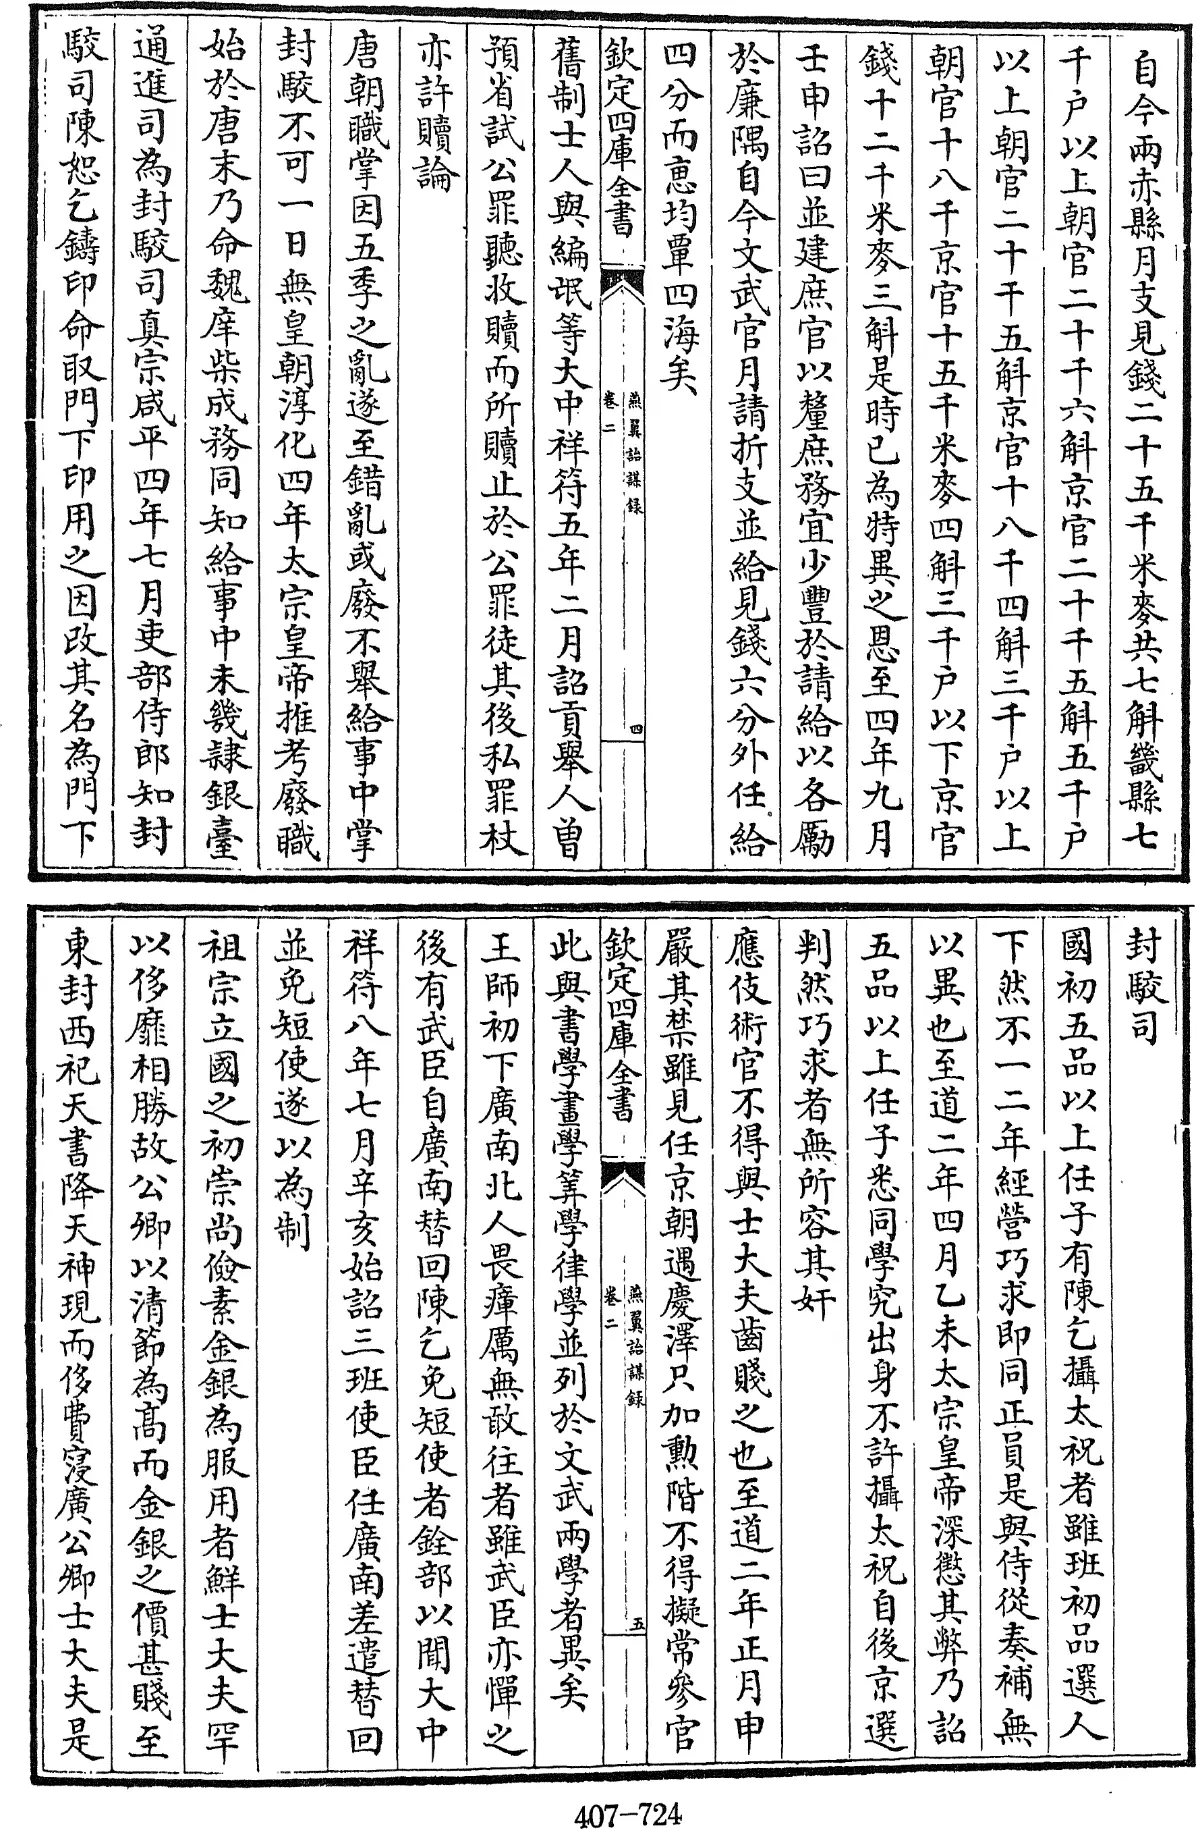 自今兩赤縣月支見錢二十五千米麥共七斛畿縣七
千户以上朝官二十千六斛京官二十千五斛五千户
以上朝官二十千五斛京官十八千四斛三千户以上
朝官十八千京官十五千米麥四斛三千户以下京官
錢十二千米麥三斛是時已為特異之恩至四年九月
壬申詔曰並建庶官以釐庶務宜少豐於請給以各勵
於廉隅自今文武官月請折支並給見錢六分外任給
四分而恵均覃四海矣
欽定四庫全書
燕翼詒謀録
卷二
四
舊制士人與編氓等大中祥符五年二月詔貢舉人曾
預省試公罪聽收贖而所贖止於公罪徒其後私罪杖
亦許贖論
唐朝職掌因五季之亂遂至錯亂或廢不舉給事中掌
封駁不可一日無皇朝淳化四年太宗皇帝推考廢職
始於唐末乃命魏庠柴成務同知給事中未幾隸銀臺
通進司為封駁司真宗咸平四年七月吏部侍郎知封
駁司陳恕乞鑄印命取門下印用之因改其名為門下
封駁司
國初五品以上任子有陳乞攝太祝者雖班初品選人
下然不一二年經營巧求即同正員是與侍從奏補無
以異也至道二年四月乙未太宗皇帝深懲其弊乃詔
五品以上任子悉同學究出身不許攝太祝自後京選
判然巧求者無所容其奸
應伎術官不得與士大夫齒賤之也至道二年正月申
嚴其禁雖見任京朝遇慶澤只加勲階不得擬常參官
欽定四庫全書
燕翼詒謀録
卷二
五
此與書學畫學筭學律學並列於文武兩學者異矣
王師初下廣南北人畏瘴厲無敢往者雖武臣亦憚之
後有武臣自廣南替回陳乞免短使者銓部以聞大中
祥符八年七月辛亥始詔三班使臣任廣南差遣替回
並免短使遂以為制
祖宗立國之初崇尚儉素金銀為服用者鮮士大夫罕
以侈靡相勝故公卿以清節為高而金銀之價甚賤至
東封西祀天書降天神現而侈費寖廣公卿士大夫是
407-724